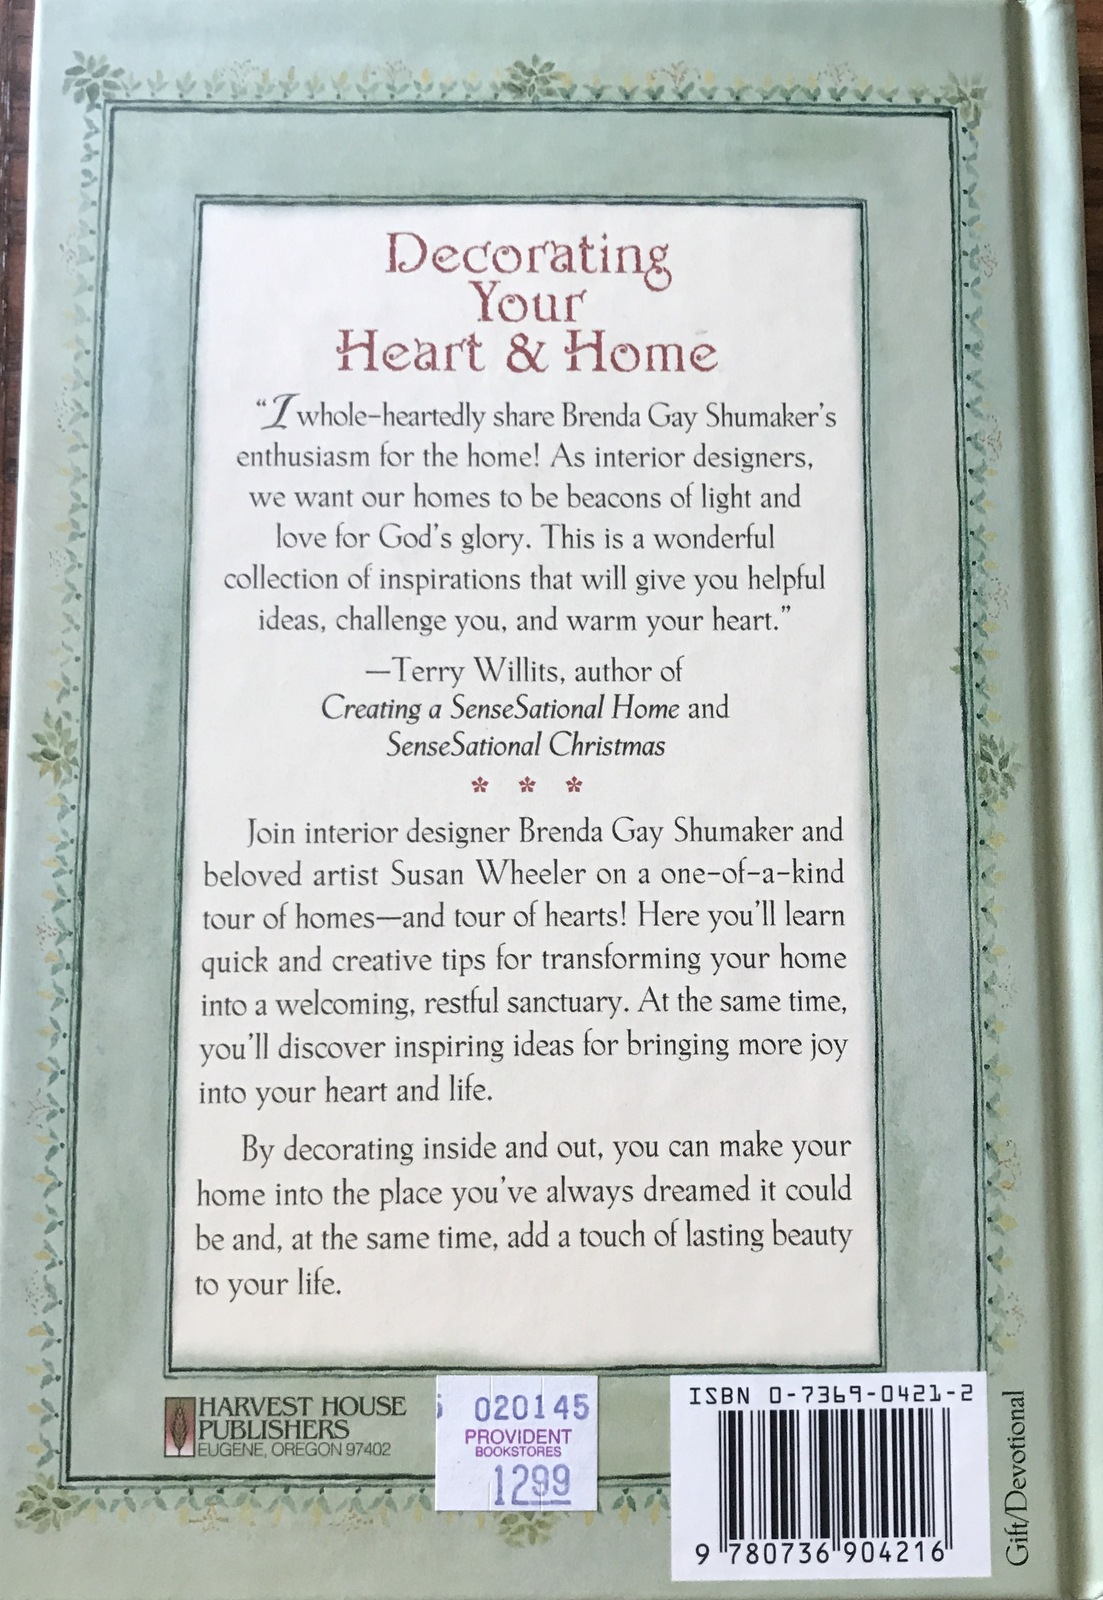 Decorating
Your
Heart & Home
“I whole-heartedly share Brenda Gay Shumaker's
enthusiasm for the home! As interior designers,
we want our homes to be beacons of light and
love for God's glory. This is a wonderful
collection of inspirations that will give you helpful
ideas, challenge you, and warm your heart.”
—Terry Willits, author of
Creating a SenseSational Home and
SenseSational Christmas
* * *
Join interior designer Brenda Gay Shumaker and
beloved artist Susan Wheeler on a one-of-a-kind
tour of homes—and tour of hearts! Here you'll learn
quick and creative tips for transforming your home
into a welcoming, restful sanctuary. At the same time,
you'll discover inspiring ideas for bringing more joy
into your heart and life.
By decorating inside and out, you can make your
home into the place you've always dreamed it could
be and, at the same time, add a touch of lasting beauty
to your life.
HARVEST HOUSE
PUBLISHERS
EUGENE, OREGON 97402
020145
PROVIDENT
BOOKSTORES
1299
ISBN 0-7369-0421-2
9 780736 904216
Gift/Devotional